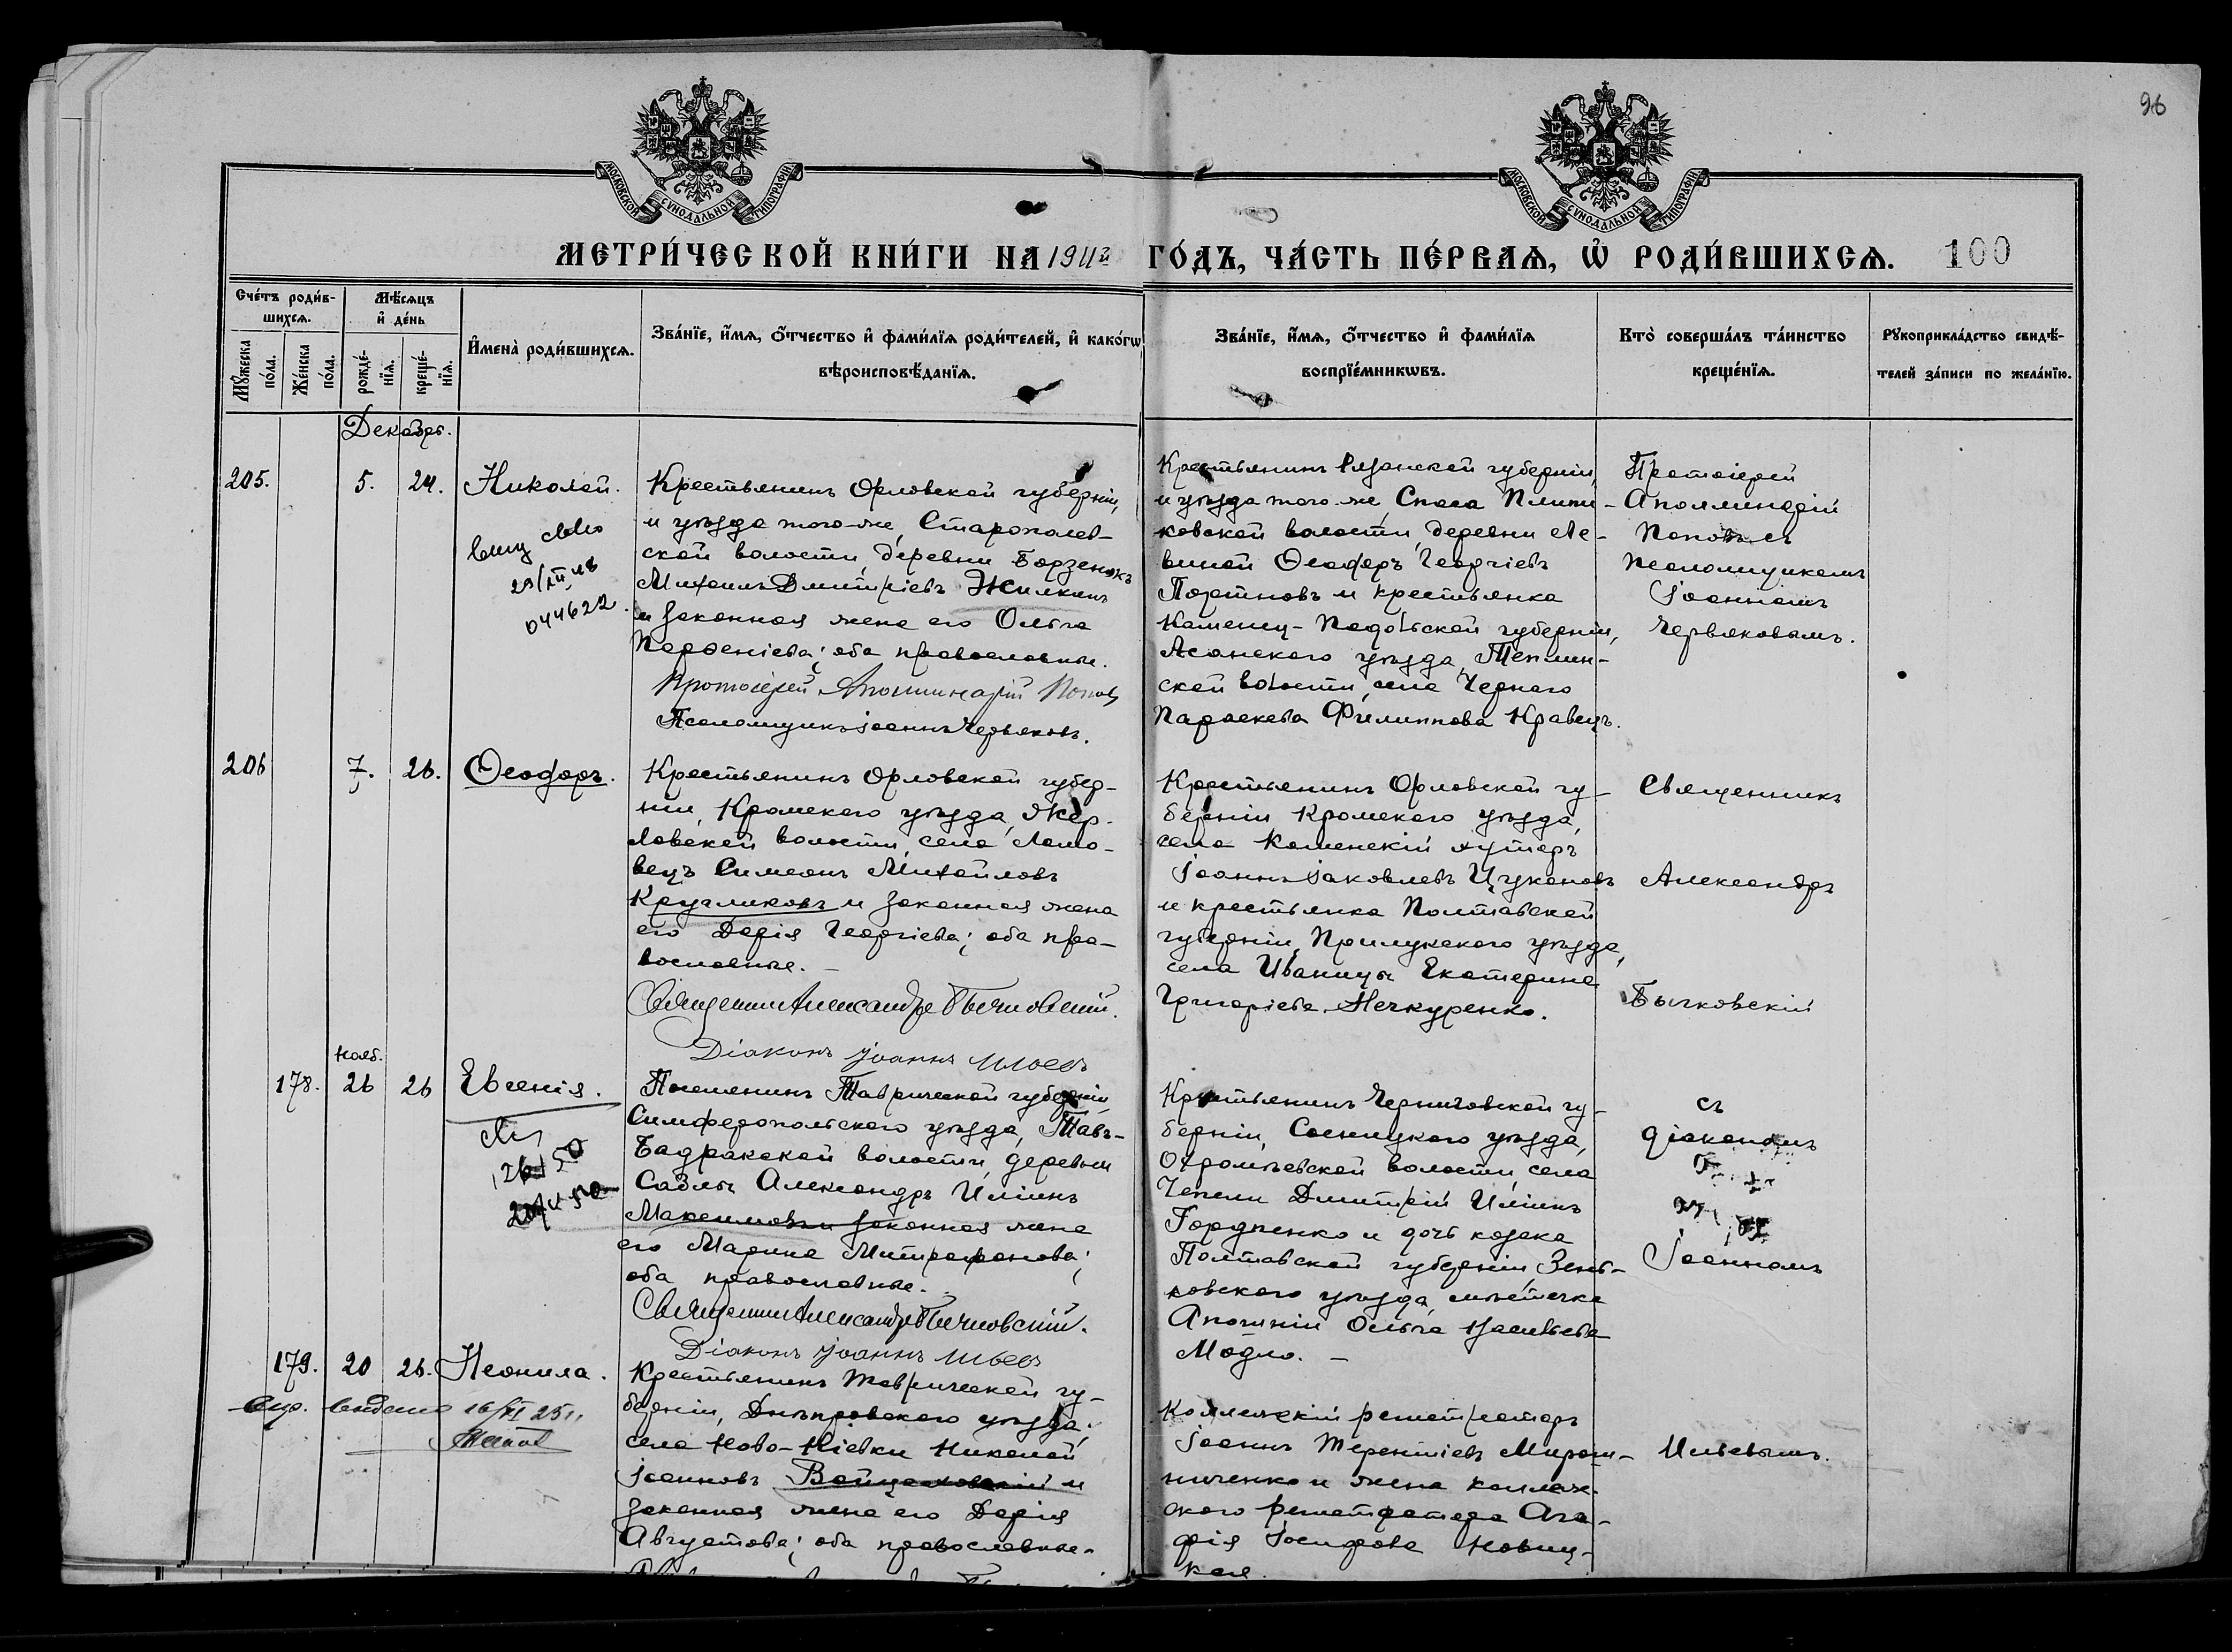 96
МОСКОВСКОЙ СУНОДАЛЬНОЙ ТИПОГРАФІИ
МОСКОВСКОЙ СУНОДАЛЬНОЙ ТИПОГРАФІИ
МЕТРИ́ЧЕСКОЙ КНИ́ГИ НА 1911й ГО́ДЪ, ЧА́СТЬ ПЕ́РВАѦ, Ѡ҆ РОДИ́ВШИХСѦ. 100
Сче́тъ роди́в-
шихсѧ.
Мꙋ́жеска
по́ла.
Же́нска
по́ла.
Мѣ́сѧцъ
и҆ де́нь
рожде́-
нїѧ.
креще́-
нїѧ.
И҆мена̀ роди́вшихсѧ.
Зва́нїе, и҆́мѧ, ѻ҆́тчество и҆ фами́лїѧ роди́телей, и҆ како́гѡ
вѣроисповѣ́данїѧ.
Зва́нїе, и҆́мѧ, ѻ҆́тчество и҆ фами́лїѧ
воспрїе́мникѡвъ.
Кто̀ соверша́лъ та́инство
креще́нїѧ.
Рꙋкоприкла́дство свидѣ́-
телей за́писи по жела́нїю.
Декабрь.
205.
5.
24.
Николай.
29/XII 18
044622.
Крестьянинъ Орловской губерніи,
и уѣзда того-же, Старополев-
ской волости, деревни Борзенокъ
Михаилъ Дмитріевъ Жилкинъ
и законная жена его Ольга
Парѳеніева; оба православные.
Протоіерей Аполлинарій Поповъ
Псаломщикъ Іоаннъ Червяковъ.
Крестьянинъ Рязанской губерніи,
и уѣзда того-же, Спаса
ковской волости, деревни Ле-
виной Ѳеодоръ Георгіевъ
Портновъ и крестьянка
Каменец-Подольской губерніи,
уѣзда,
ской волости, села Чернаго
Параскева Филиппова Кравецъ.
Протоіерей
Аполлинарій
Поповъ съ
псаломщикомъ
Іоанномъ
Червяковымъ.
206
7.
26.
Ѳеодоръ.
Крестьянинъ Орловской губер-
ніи, Кромскаго уѣзда, Жер-
ловской волости, села Ломо-
вецъ Симеонъ Михайловъ
Кругликовъ и законная жена
его Дарія Георгіева; оба пра-
вославные.-
Священникъ Александръ Бычковскій.
Діаконъ Іоаннъ Ильевъ
Крестьянинъ Орловской гу-
берніи Кромскаго уѣзда,
села Каменскій хуторъ
Іоаннъ Іаковлевъ Цукановъ
и крестьянка Полтавской
губерніи, Прилукскаго уѣзда,
села Иваницы Екатерина
Григоріева Нечкуренко.
Священникъ
Александръ
Бычковскій
178.
Нояб.
26
26
Евгенія.
Поселянинъ Таврической губерніи
Симферопольскаго уѣзда, Тавъ-
Бадракской волости, деревни
Саблы Александръ Иліинъ
Максимовъ и законная жена
его Марина Митрофанова;
оба православные.-
Священникъ Александръ Бычковскій.
Діаконъ Іоаннъ Ильевъ
Крестьянинъ Черниговской гу-
берніи, Сосницкаго уѣзда,
волости села
Чепели Димитрій Иліинъ
Гордіенко и дочь козака
Полтавской губерніи, Зень-
ковскаго уѣзда, мѣстечка
Опошни Ольга Васильева
Модло.-
съ
діакономъ
Іоанномъ
179.
20
26.
Неонила.
16/XI 25 г.
Крестьянинъ Таврической гу-
берніи, Днѣпровскаго уѣзда,
села Ново-Кіевки Николай
Іоанновъ Войцеховскій и
законная жена его Дарія
Августова; оба православные.
Коллежскій регистраторъ
Іоаннъ Терентіевъ Мирош-
ниченко и жена коллеж-
скаго регистратора Ага-
фія Іосифова Новиц-
кая.
Ильевымъ.